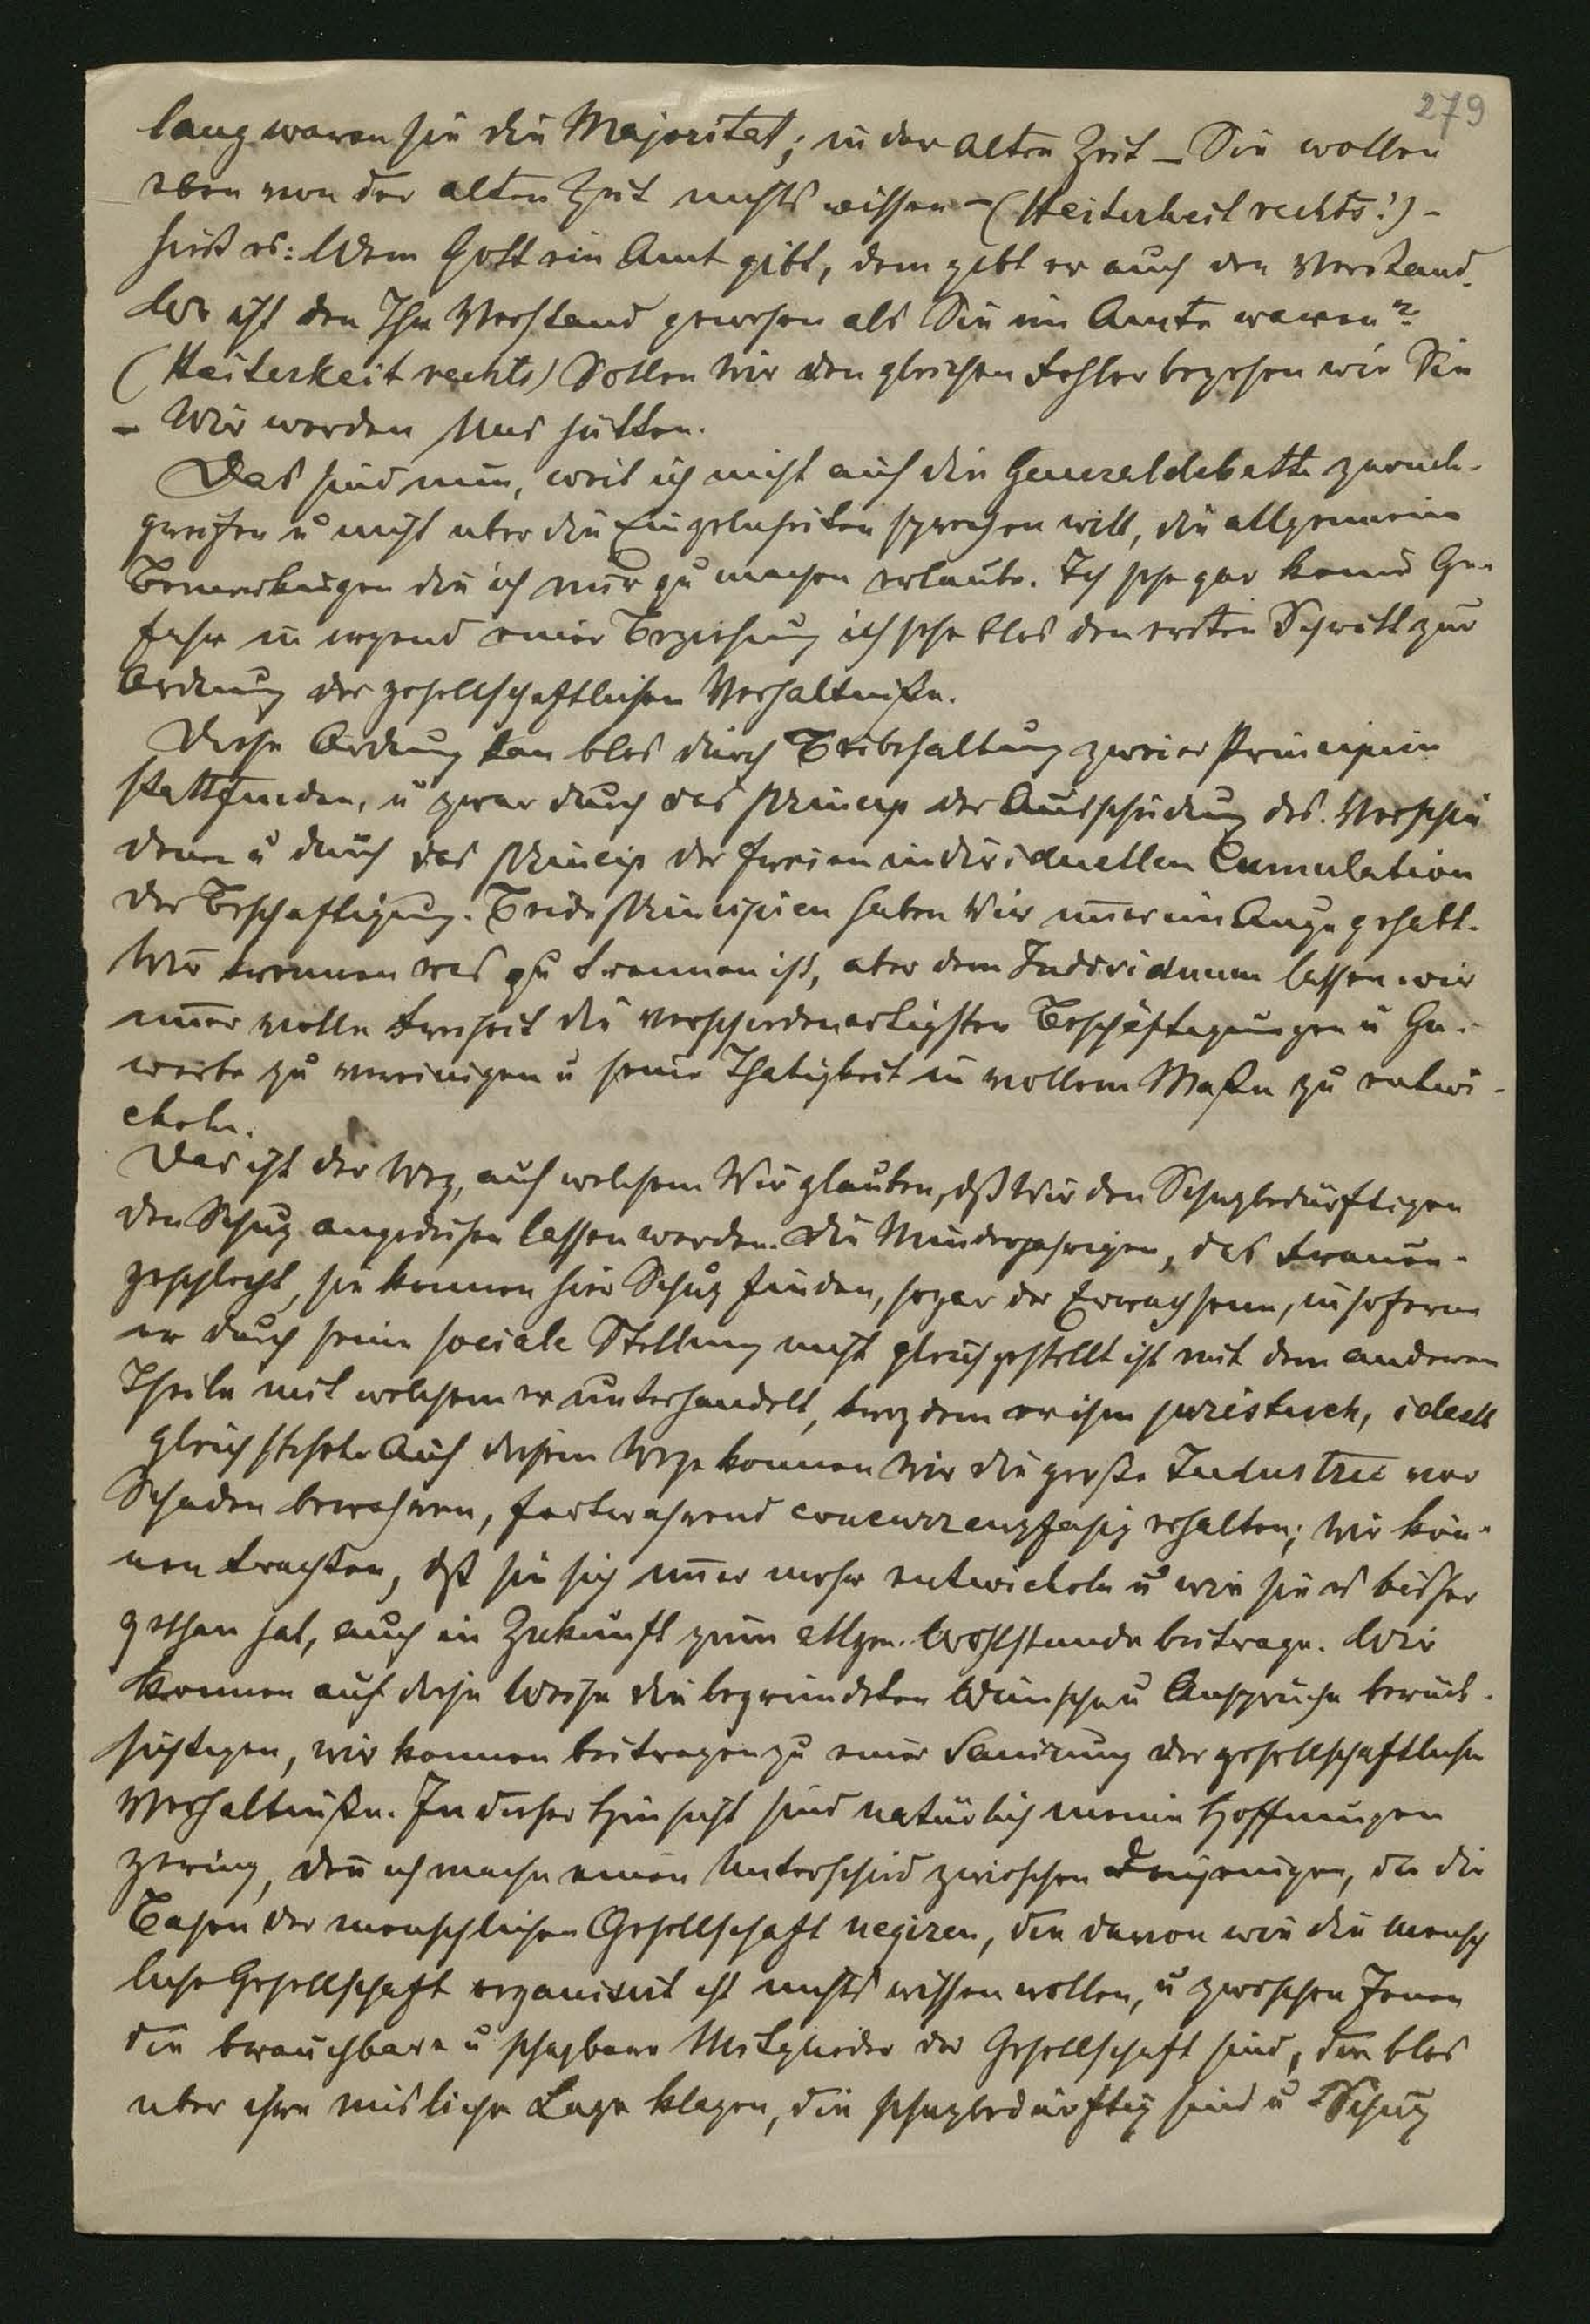 279
lang waren sie die Majoritet; in der alten Zeit – Sie wollen
eben von der alten Zeit nichts wissen – (Heiterkeit rechts!) –
hieß es: Wem Gott ein Amt gibt, dem gibt er auch den Verstand.
Wo ist den Ihr Verstand gewesen als Sie im Amte waren?
(Heiterkeit rechts) Sollen Wir den gleichen Fehler begehen wie Sie
– Wir werden Uns hüten.
Das sind nun, weil ich nicht auf die Generaldebatte zurück-
greifen u nicht uber die Einzelnheiten sprechen will, die allgemeine
Bemerkungen die ich mir zu machen erlaube. Ich sehe gar keine Ge-
fahr in irgend einer Beziehung ich sehe blos den ersten Schritt zur
Ordnung der gesellschaftlichen Verhaltniße.
Diese Ordnung kan blos durch Beibehaltung zweier Principien
stattfinden, u zwar durch das Princip der Ausscheidung des Verschie
denen u durch das Princip der freien individuellen Cumulation
der Beschaftigung. Beide Principien haben Wir im̄er im Auge gehabt.
Wir trennen was zu trennen ist, aber dem Individuum lassen wir
im̄er volle Freiheit die verschiedenartigsten Beschäftigungen u Ge-
werbe zu vereinigen u seine Thatigkeit in vollem Maße zu entwi-
ckeln.
Das ist der Weg, auf welchem Wir glauben, dß Wir den Schuzbedürftigen
den Schuz angedeihen lassen werden. Die Minderjahrigen, das Frauen-
geschlecht, sie konnen hier Schuz finden, sogar der Erwachsene, insoferne
er durch seine sociale Stellung nicht gleichgestellt ist mit dem anderen
Theile mit welchem er unterhandelt, trozdem er ihm juristisch, ideell
gleichstehe. Auf diesem Wege konnen Wir die große Industrie vor
Schaden bewahren, fortwahrend concurrenzfahig erhalten; Wir kön-
nen trachten, dß sie sich im̄er mehr entwickeln u wie sie es bisher
gethan hat, auch in Zukunft zum allgem. Wohlstande beitrage. Wir
konnen auf diese Weise die begrundeten Wünsche u Anspruche berück-
sichtigen, wir konnen beitragen zu einer Sanirung der gesellschaftlichen
Verhaltniße. In dieser Hinsicht sind natürlich meine Hoffnungen
gering, den̄ ich mache einen Unterschied zwischen Denjenigen, die die
Basen der menschlichen Gesellschaft negiren, die davon wie die mensch
liche Gesellschaft organisirt ist nichts wissen wollen, u zwischen Jenen
die brauchbare u schazbare Mitglieder der Gesellschaft sind, die blos
uber ihre misliche Lage klagen, die schuzbedürftig sind u Schuz